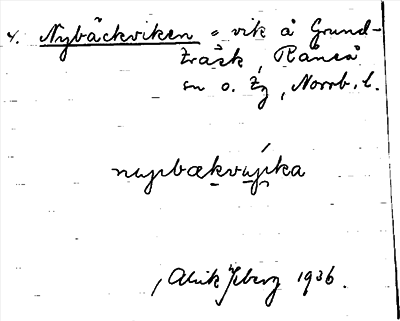 4. Nybäckviken = vik å Grund-
träsk, Råneå
sn o. tg, Norrb. l.
nypbækvyika
Alrik Byberg 1936.